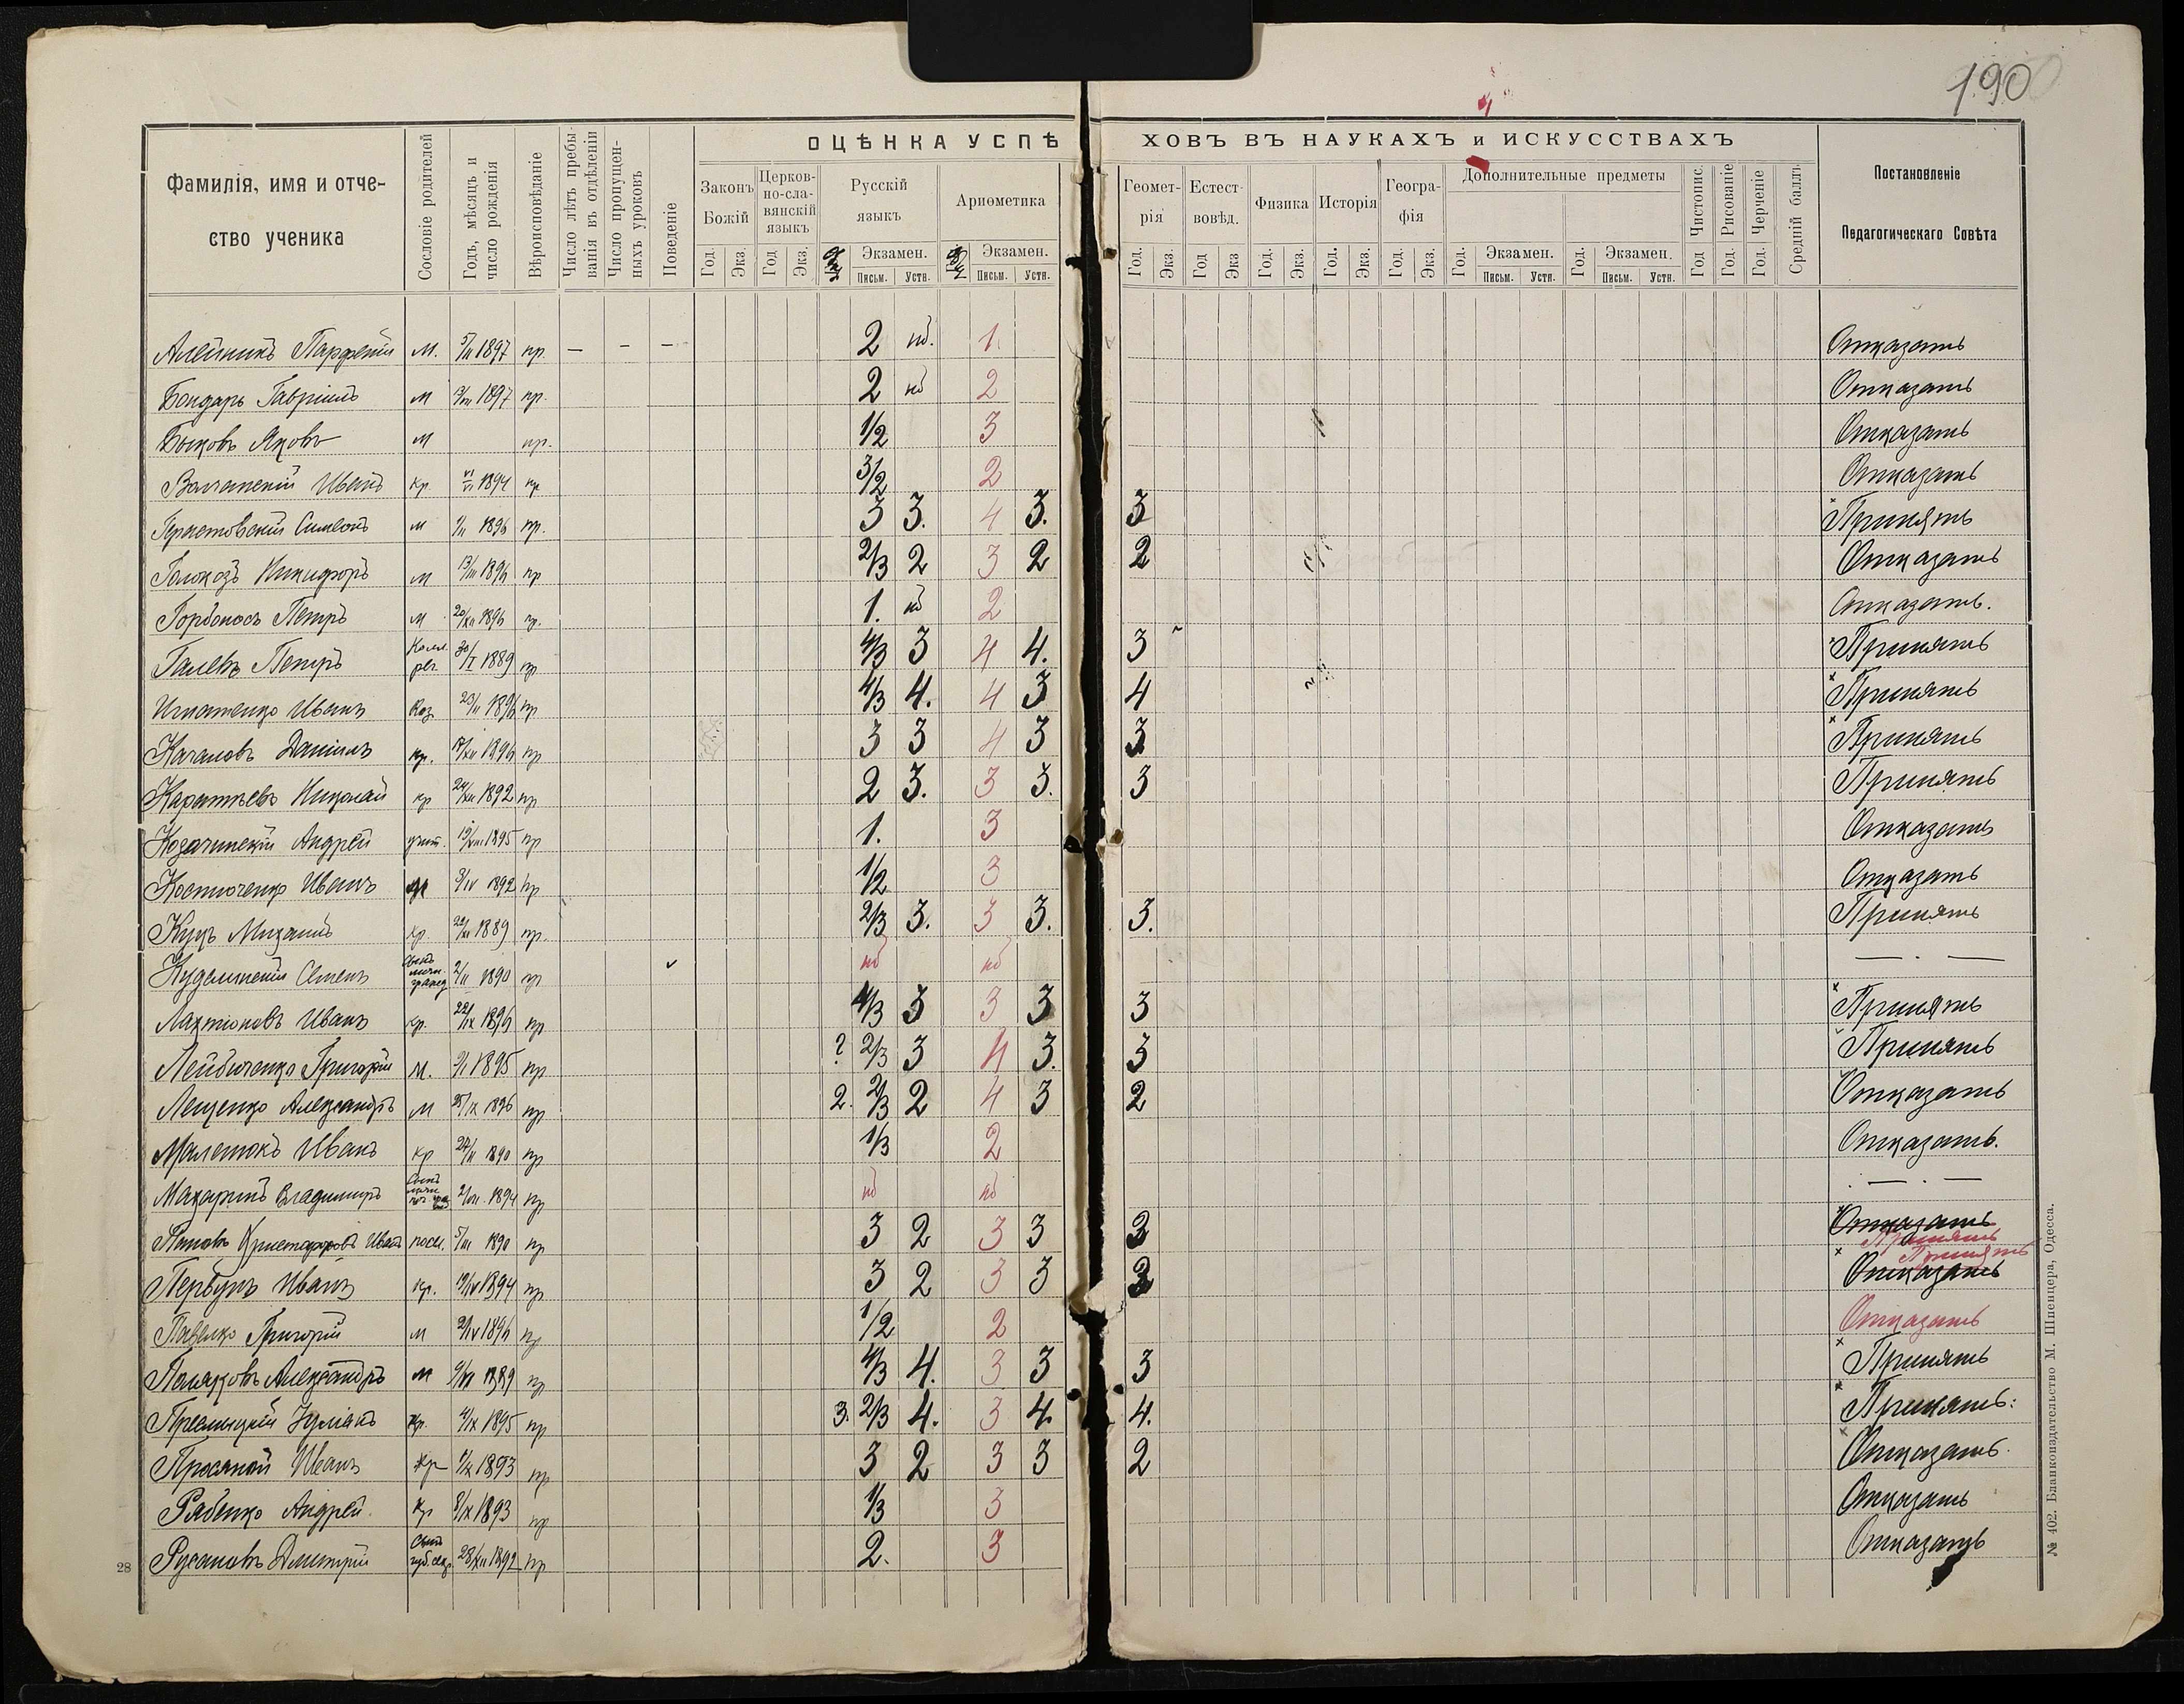 190
ОЦѢНКА УСПѢХОВЪ ВЪ НАУКАХЪ и ИСКУССТВАХЪ
Фамилія, имя и отчество ученика
Сословіе родителей
Годъ, мѣсяцъ и число рожденія
Вѣроисповѣданіе
Число лѣтъ пребыванія въ отдѣленіи
Число пропущенныхъ уроковъ
Поведеніе
Законъ Божій
Церковно-славянскій языкъ
Русскій языкъ
Ариѳметика
Геометрія
Естествовѣд.
Физика
Исторія
Географія
Дополнительные предметы
Год Чистопис.
Год. Рисованіе
Год. Черченіе
Средній баллъ.
Постановленіе Педагогическаго Совѣта
Год. Экз. Год Экз. Экзамен. Письм. Устн. Экзамен. Письм. Устн. Год. Экз. Год Экз Год. Экз. Год. Экз. Год. Экз. Год. Экзамен. Письм. Устн. Год. Экзамен. Письм. Устн.
Алейникъ Парфеній м. 1897 пр. — - — 2 нб. 1. Отказать
Бондарь Гавріилъ м 1897 пр. 2 нб 2 Отказать
Быковъ Яковъ м пр. 1/2 3 Отказать
Иванъ кр. 1894 пр 3/2 2 Отказать
Симеонъ м 1896 пр. 3 3. 4 3. 3 Принять
Никифоръ м 13/III 1896 пр 2/3 2 3 2 2 Отказать
Горбоносъ Петръ м 20/XII 1896 пр. 1. нб 2 Отказать.
Галевъ Петръ Колл. рег. 1889 пр 4/3 3 4 4. 3 Принять
Игнатенко Иванъ Каз. 23/II 1896 пр 4/3 4. 4 3 4 Принять
Качановъ Даніилъ кр. 17/XII 1896 пр 3 3 4 3 3 Принять
Николай кр 24/XII 1892 пр 2 3. 3 3. 3 Принять
Козачинскій Андрей 19/VIII 1895 пр 1. 3 Отказать
Костюченко Иванъ 9/IV 1892 пр 1/2 3 Отказать
Куцъ Михаилъ кр. 1889 пр. 2/3 3. 3 3. 3. Принять
Семенъ 2/II 1890 пр нб нб — . —
Лактіоновъ Иванъ кр. 22/IX 1896 пр 4/3 3 3 3 3 Принять
Лейбиченко Григорій м. 1895 пр ? 2/3 3 4 3. 3 Принять
Лещенко Александръ м 25/IX 1896 пр 2. 2/3 2 4 3 2 Отказать
Малетокъ Иванъ кр 24/II 1890 пр 1/3 2 Отказать.
Макаринъ Владимиръ 2/VII 1894 пр нб нб . — . —
Поповъ Иванъ посел. 5/III 1890 пр 3 2 3 3 Отказать Принять
Первунъ Иванъ кр. 1894 пр 3 2 3 3 Отказать Принять
Павелко Григорій м 1896 пр 1/2 2 Отказать
Поляковъ Александръ м 1889 пр 4/3 4. 3 3 3 Принять
Юліанъ кр. 4/IX 1895 пр 3. 2/3 4. 3 4. 4. Принять:
Просяной Иванъ кр 1893 пр 3 2 3 3 2 Отказать.
Рябенко Андрей кр 8/IX 1893 пр 1/3 3 Отказать
Русановъ Дмитрій Сынъ губ. секр. 28/XII 1892 пр 2. 3 Отказать
28
№ 402. Бланкоиздательство М. Шпенцера, Одесса.